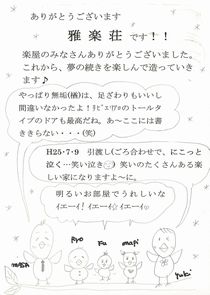 ありがとうございます
雅楽荘です！！
楽屋のみなさんありがとうございました。
これから、夢の続きを楽しんで造っていき
ます♪
やっぱり無垢(楢)は、足ざわりもいいし
間違いなかったよ！ﾘﾋﾞｪﾘｱのトールタ
イプのドアも最高だね。あ～ここには書
ききらない・・・(笑)
H25・7・9 引渡し(ごろ合わせで、にこっと
泣く…笑い泣き) 笑いのたくさんある楽
しい家になりますよ～に。
明るいお部屋でうれしいな
ｲｴｰｲ！ ｲｴｰｲ☆ ｲｴｰｲ♡
MASA
Ryo
Fu
mapi
Yuki